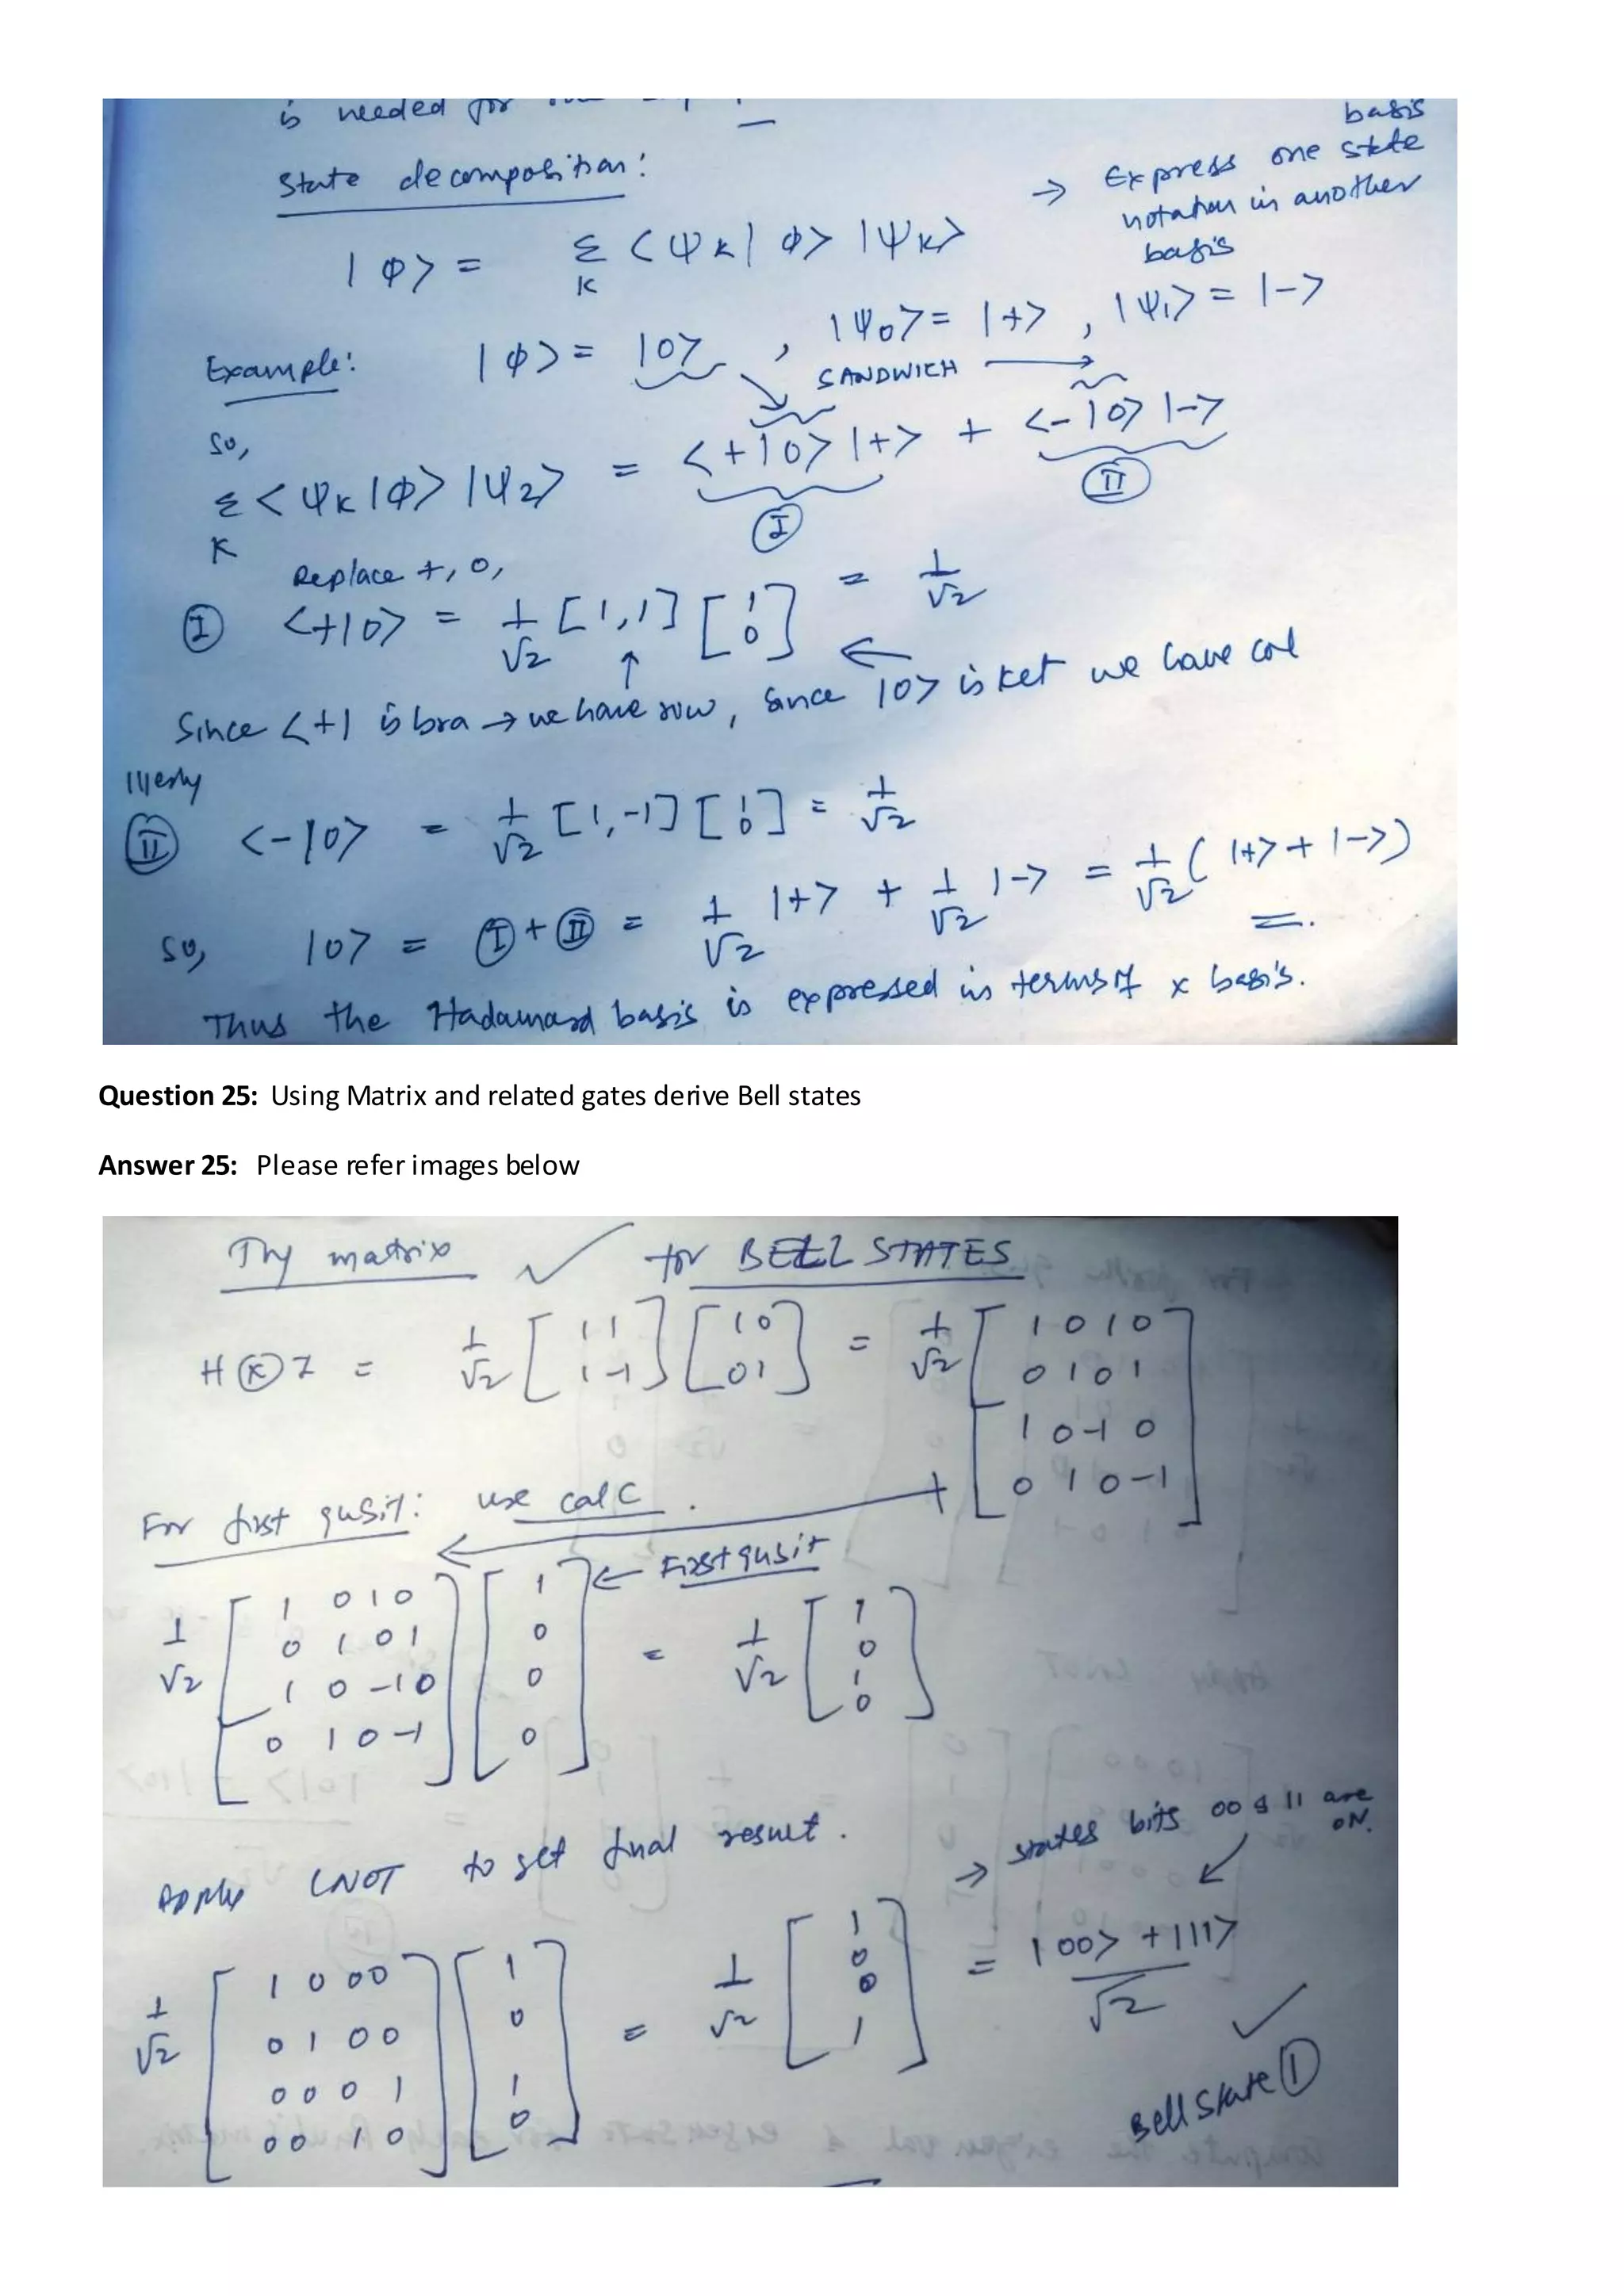 is needed for
basis
State decomposition:
→ Express one state
notation in another
basis
|φ> = Σ <ψk|φ> |ψk>
K
Example: |φ> = |0> , |ψ0> = |+> , |ψ1> = |->
SANDWICH
so,
Σ <ψk|φ> |ψ2> = <+|0> |+> + <-|0> |->
K
I II
Replace +, 0,
I <+|0> = 1/√2 [1,1] [1 0] = 1/√2
Since <+| is bra → we have row, since |0> is ket we have col
lllerly
II <-|0> = 1/√2 [1,-1] [1 0] = 1/√2
so, |0> = I + II = 1/√2 |+> + 1/√2 |-> = 1/√2 ( |+> + |-> )
Thus the Hadamard basis is expressed in terms of x basis.
Question 25: Using Matrix and related gates derive Bell states
Answer 25: Please refer images below
Try matrix ✓ for BELL STATES
H ⊗ I = 1/√2 [1 1 1 -1] [1 0 0 1] = 1/√2
1 0 1 0
0 1 0 1
1 0 -1 0
0 1 0 -1
For first qubit: use calc.
← First qubit
1/√2
1 0 1 0
0 1 0 1
1 0 -1 0
0 1 0 -1
1
0
0
0
= 1/√2
1
0
1
0
Apply CNOT to get final result.
→ states bits 00 & 11 are
ON.
1/√2
1 0 0 0
0 1 0 0
0 0 0 1
0 0 1 0
1
0
1
0
= 1/√2
1
0
0
1
= |00> + |11>
√2
Bell State 1